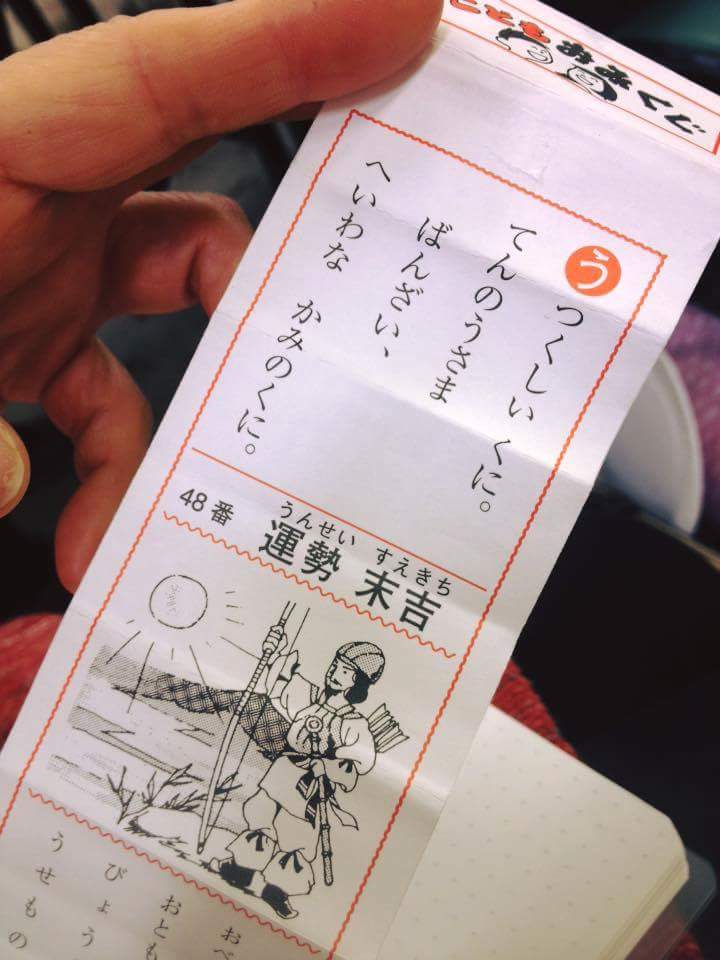 うつくしい くに。
てんのうさま
ばんざい、
へいわな かみのくに。
うんせい すえきち
運勢 末吉
48番
おべ
おとも
びょう
うせもの